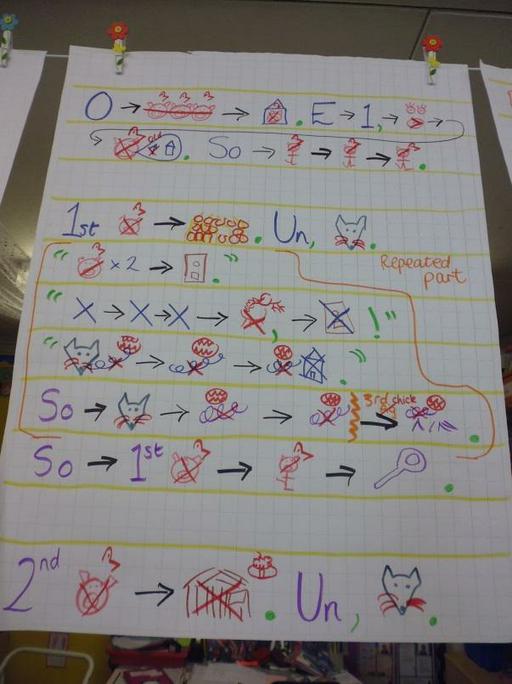 O → → . E → 1, →
→ old . So → → → .
1st → . Un, .
" x2 → . " Repeated part
" X → X → X → , → ! "
" → → . "
So → → → 3rd chick .
So → 1st → → .
2nd → . Un, .